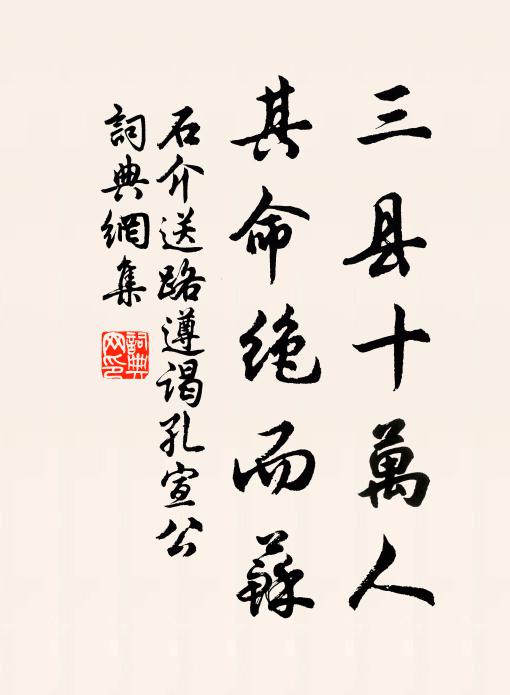 三县十萬人
其命绝而蘇
石介送路遵谒孔宣公
詞典網集
詞典
网印